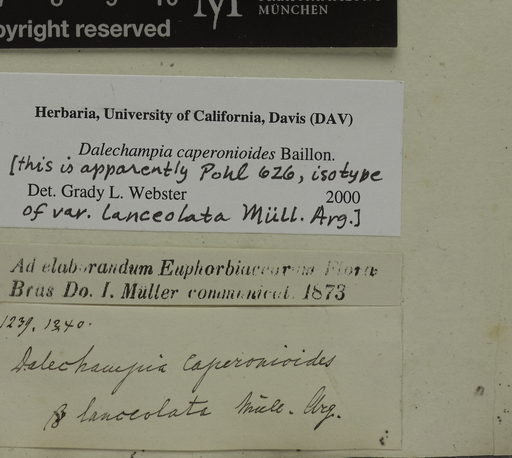 opyright reserved
MÜNCHEN
Herbaria, University of California, Davis (DAV)
Dalechampia caperonioides Baillon.
[this is apparently Pohl 626, isotype
Det. Grady L. Webster 2000
of var. lanceolata Müll. Arg.]
Ad elaborandum Euphorbiacearum Flora
Bras Do. I. Müller communicat. 1873
1239. 1340.
Dalechampia caperonioides
β lanceolata Müll. Arg.